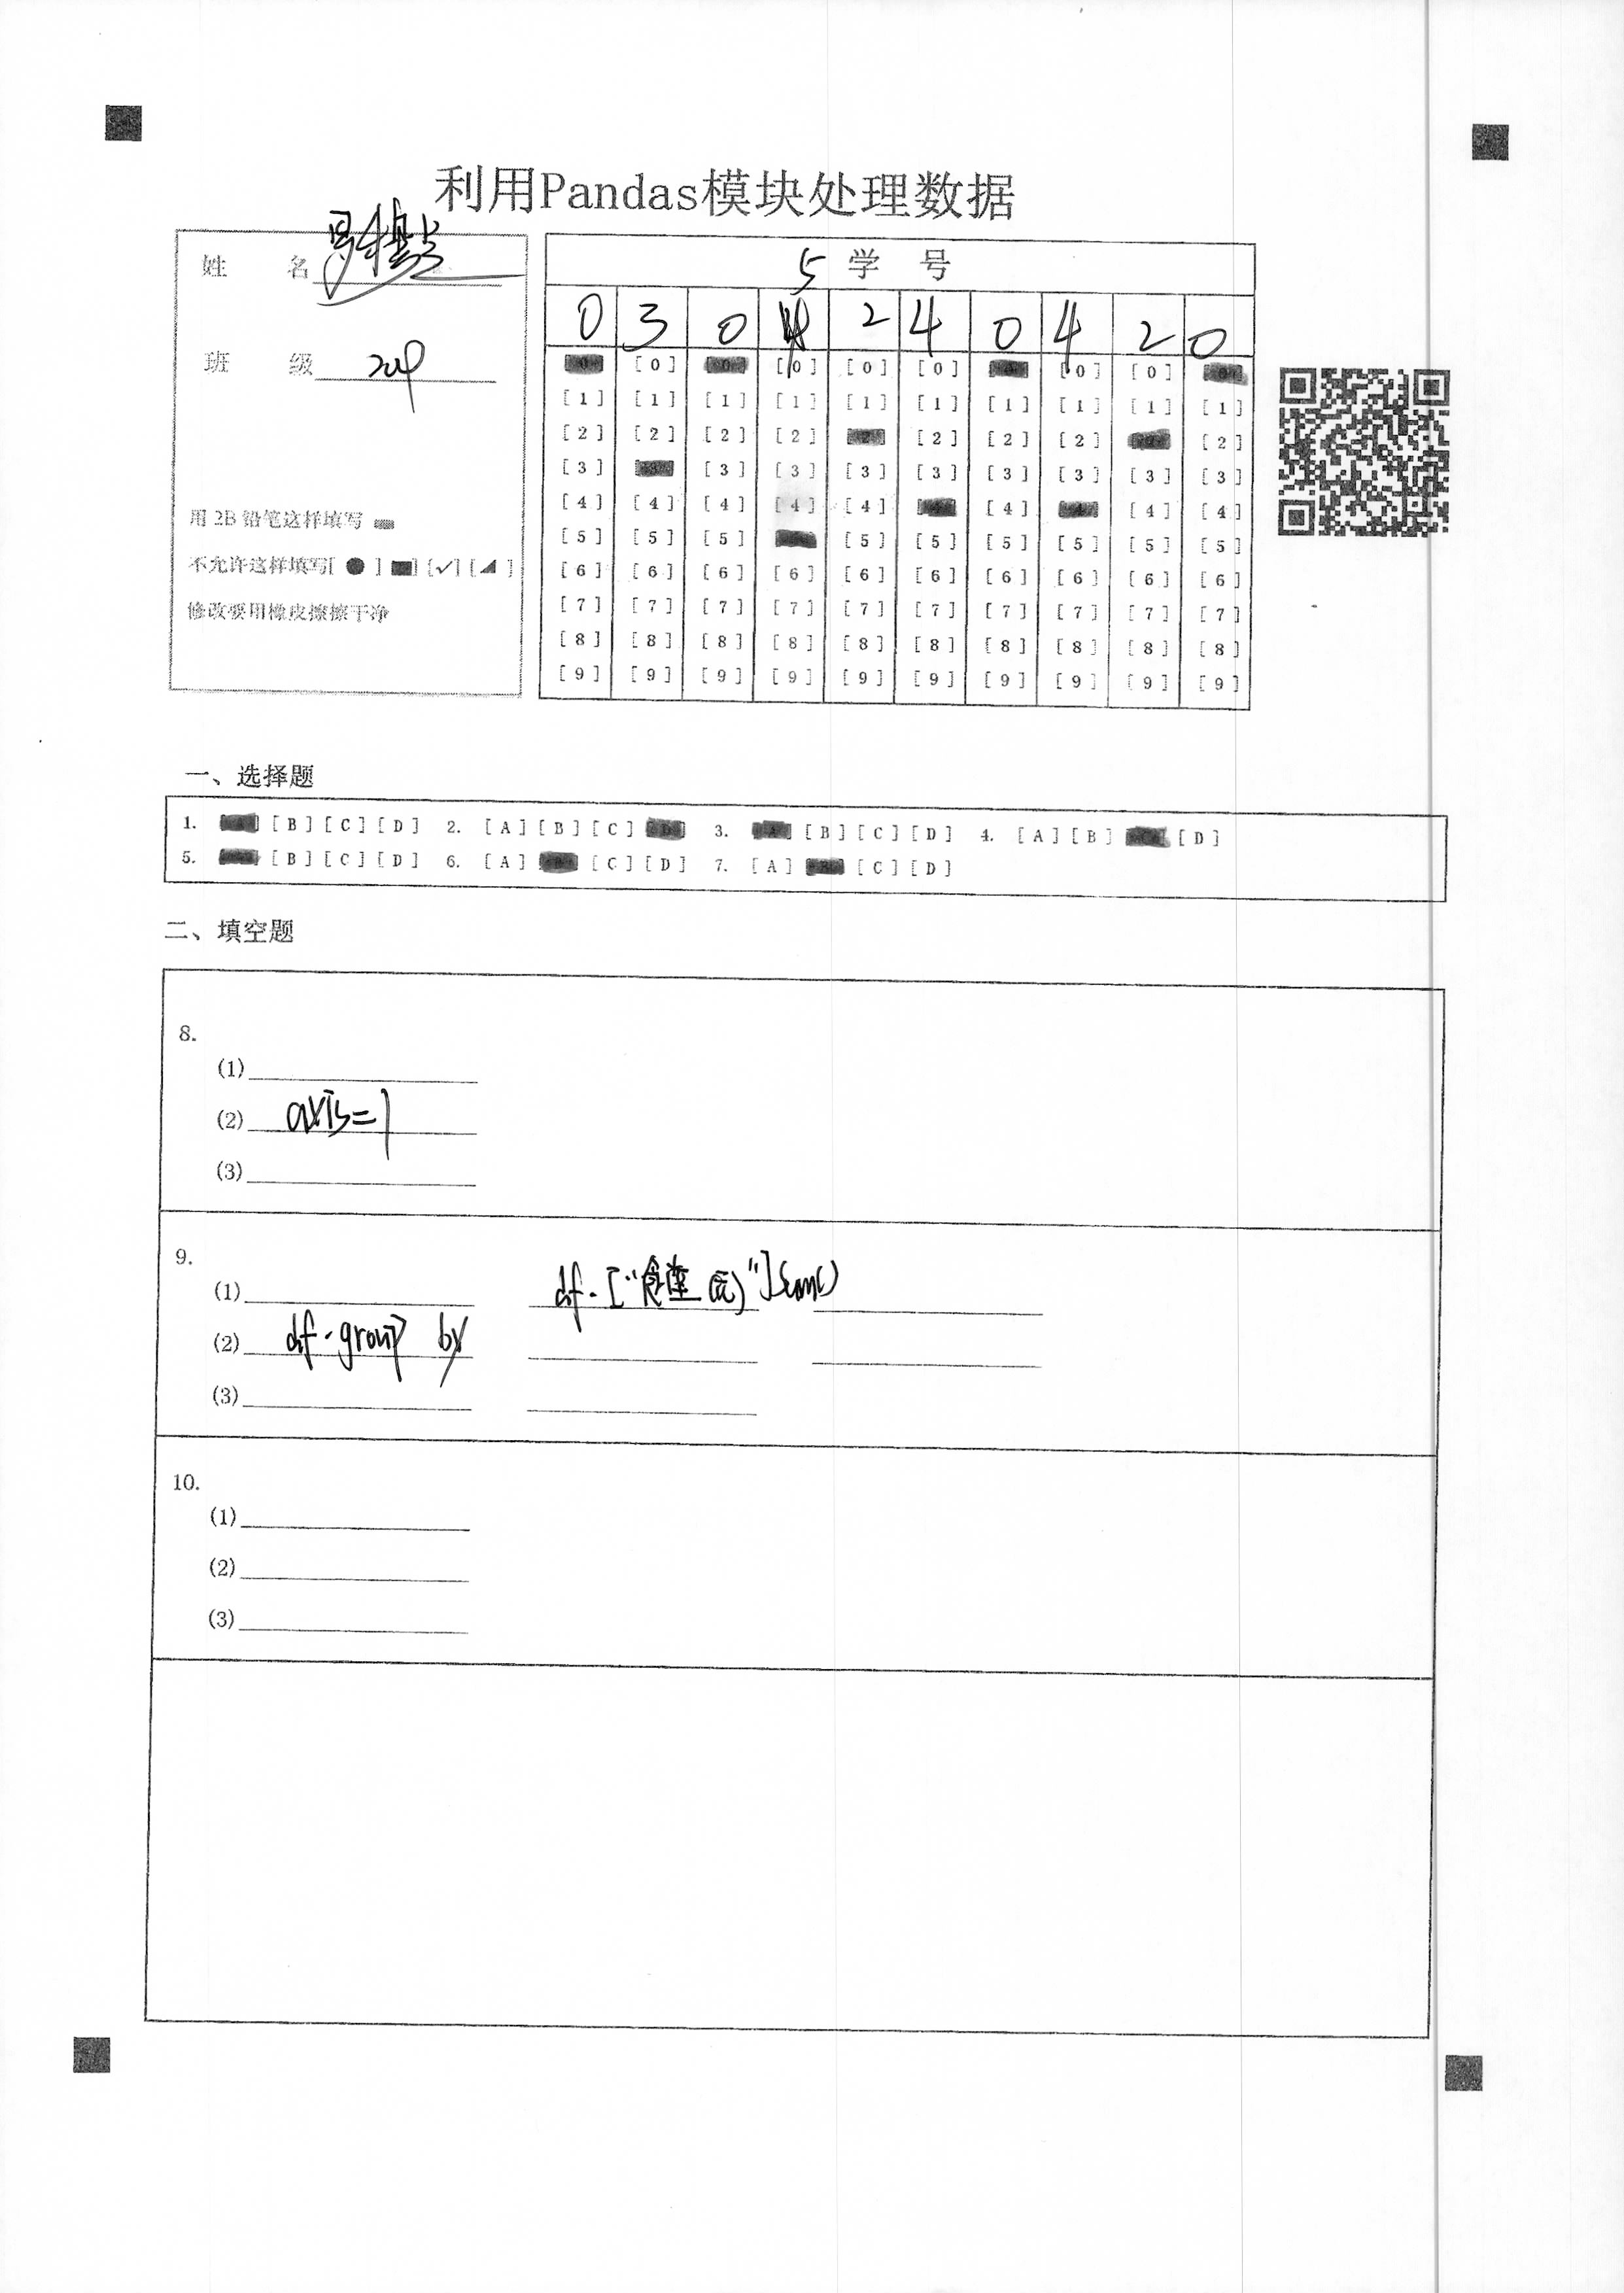 利用Pandas模块处理数据
姓 名
班 级 204
用 2B 铅笔这样填写
不允许这样填写[ ● ] [■] [✓] [◢ ]
修改要用橡皮擦擦干净
5 学 号
0 3 0 2 4 0 4 2 0
[0] [0] [0] [0] [0] [0]
[1] [1] [1] [1] [1] [1] [1] [1] [1] [1]
[2] [2] [2] [2] [2] [2] [2] [2]
[3] [3] [3] [3] [3] [3] [3] [3] [3]
[4] [4] [4] [4] [4] [4] [4] [4]
[5] [5] [5] [5] [5] [5] [5] [5] [5]
[6] [6] [6] [6] [6] [6] [6] [6] [6] [6]
[7] [7] [7] [7] [7] [7] [7] [7] [7] [7]
[8] [8] [8] [8] [8] [8] [8] [8] [8] [8]
[9] [9] [9] [9] [9] [9] [9] [9] [9] [9]
一、选择题
1. [B] [C] [D] 2. [A] [B] [C] 3. [B] [C] [D] 4. [A] [B] [D]
5. [B] [C] [D] 6. [A] [C] [D] 7. [A] [C] [D]
二、填空题
8.
(1)
(2) axis=1
(3)
9.
(1) df.["(元)"]sum()
(2) df.group by
(3)
10.
(1)
(2)
(3)